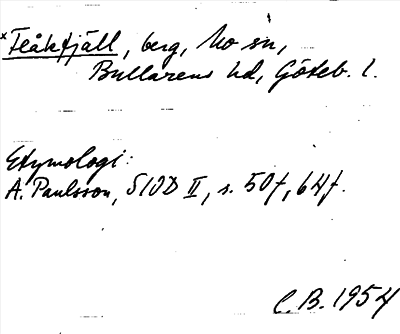 *Flåkfjäll, berg, Mo sn,
Bullarens hd, Göteb. l.
Etymologi:
A. Paulsson, SIOD II, s. 50f, 64f.
C.B. 1954